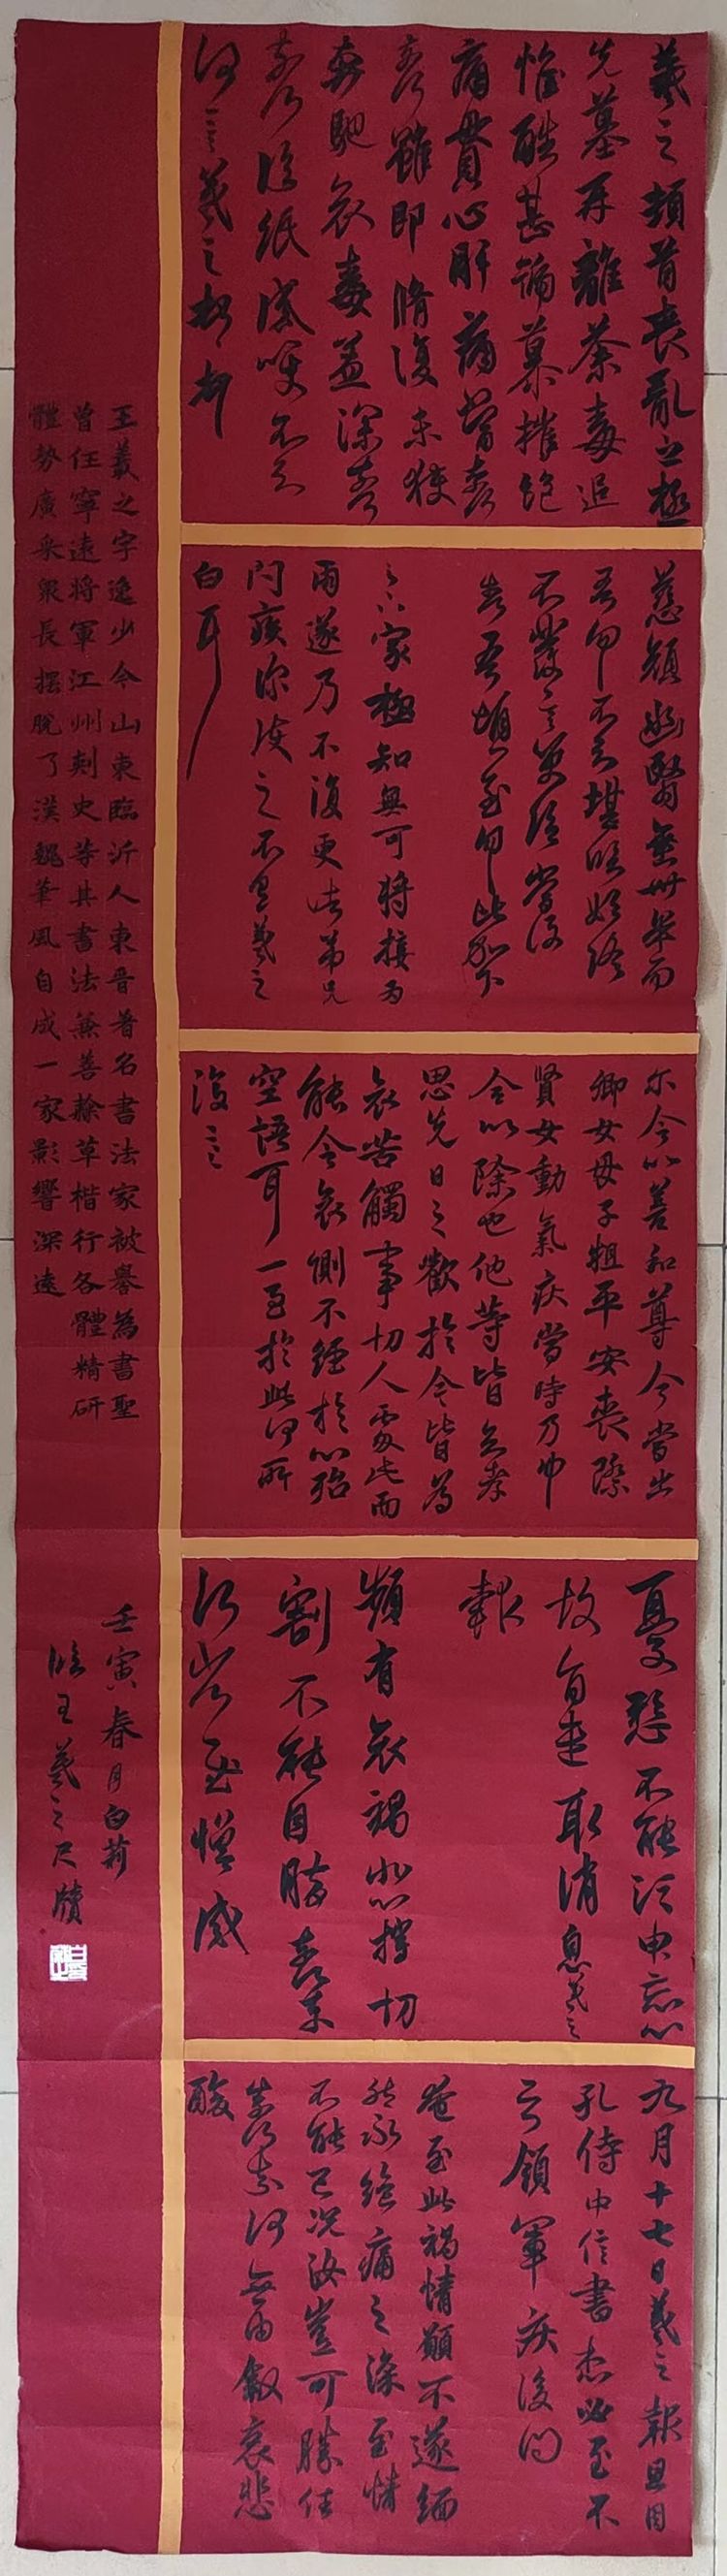 羲之頓首喪亂之極
先墓再離荼毒追
惟酷甚號慕摧絕
痛貫心肝痛當奈
奈何雖即脩復未獲
奔馳哀毒益深奈
奈何臨紙感哽不知
何言羲之頓首
慈顏幽翳垂卅年而
吾勿不知堪臨始終
不發言哽絕當復
奈吾頃至勿勿比加下
家極知無可將接為
雨遂乃不復更諸弟兄
問疾深護之不具羲之
白耳
尔今以善和尊今當出
卿女母子粗平安喪際
賢女動氣疾當時乃中
今以除也他等皆無恙
思先日之歡於今皆為
哀苦觸事切人處此而
能令哀惻不經於心殆
空語耳一至於此何所
復言
憂愁不能須申忘心
故旨遣取消息羲之
報
頻有哀禍悲摧切
割不能自勝奈何
何省至增感
九月十七日羲之報且因
孔侍中信書想必至不
知領軍疾後問
奄至此禍情願不遂緬
然永絕痛之深至情
不能已況汝豈可勝任
奈何奈何無由敘哀悲
酸
王羲之字逸少今山東臨沂人東晉著名書法家被譽為書聖
曾任寧遠將軍江州刺史等其書法兼善隸草楷行各體精研
體勢廣采眾長擺脫了漢魏筆風自成一家影響深遠
壬寅春月白莉
臨王羲之尺牘